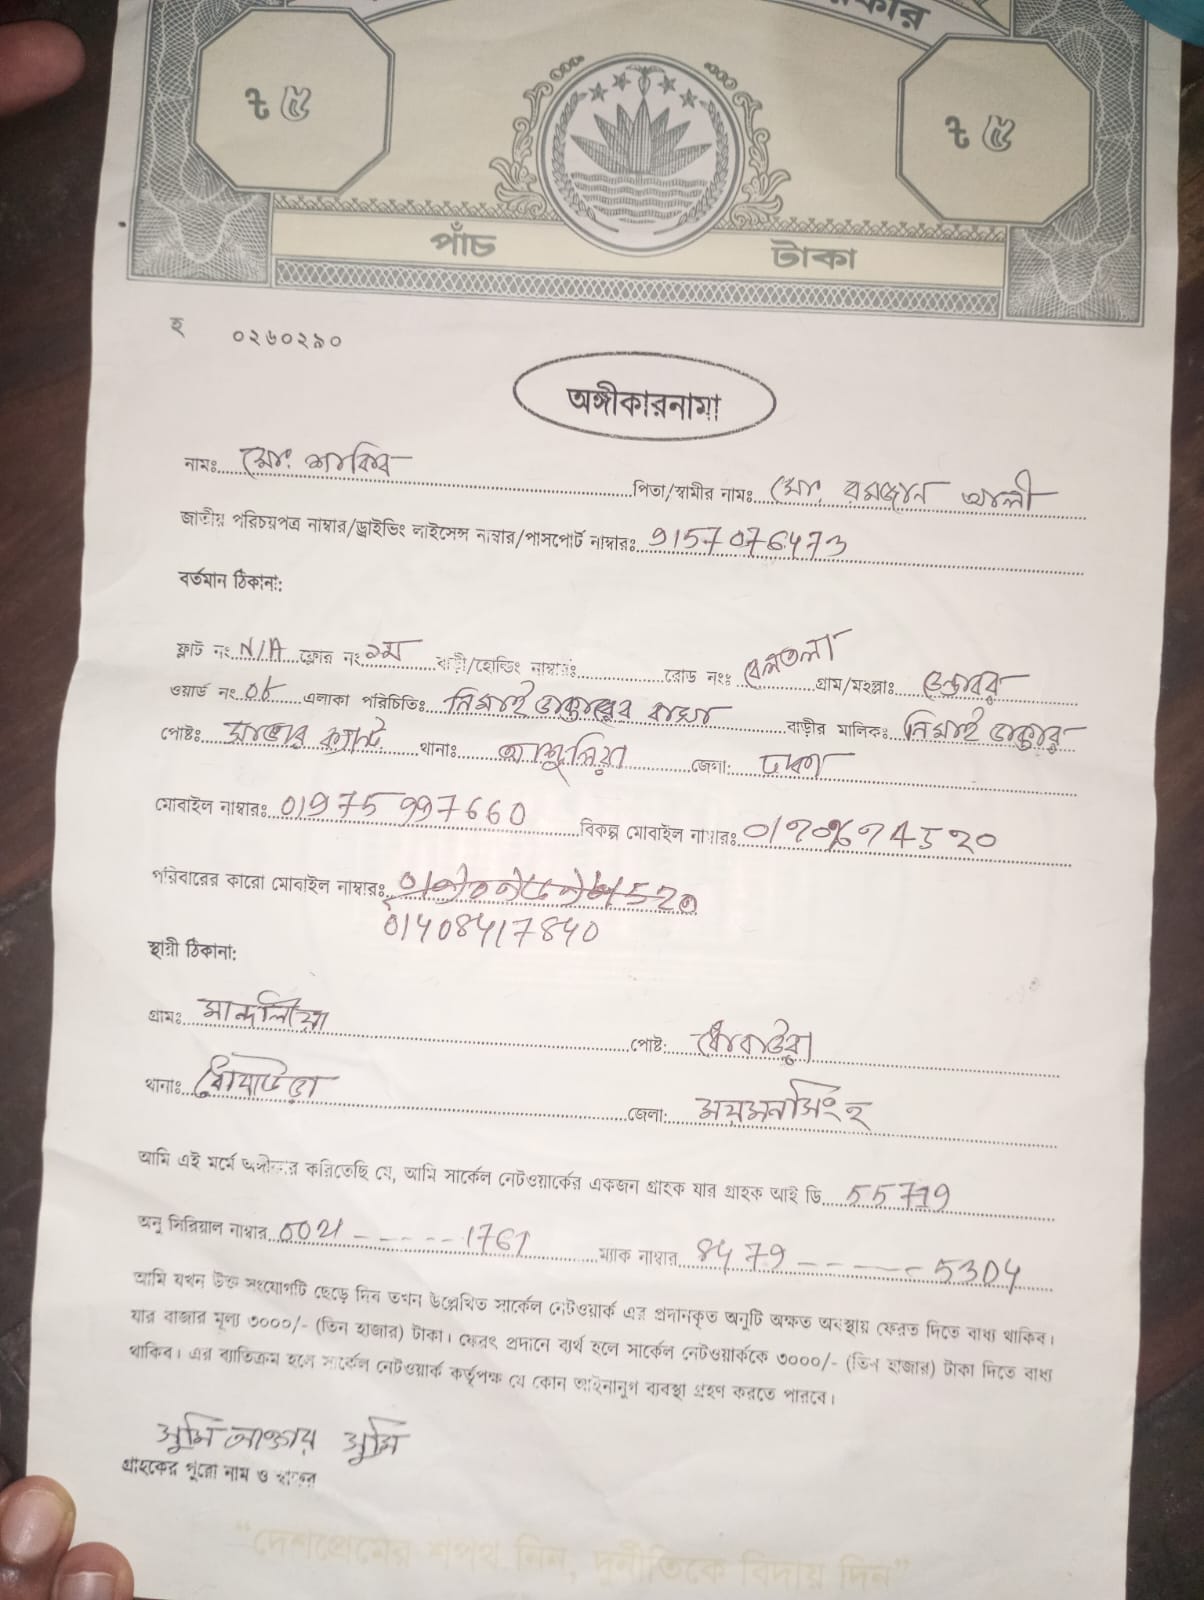 কার
৳ ৫
৳ ৫
পাঁচ টাকা
হ ০২৬০২৯০
অঙ্গীকারনামা
নামঃ মো. শাকিব পিতা/স্বামীর নামঃ মো. রমজান আলী
জাতীয় পরিচয়পত্র নাম্বার/ড্রাইভিং লাইসেন্স নাম্বার/পাসপোর্ট নাম্বারঃ 9157076473
বর্তমান ঠিকানা:
ফ্লাট নং N/A ফ্লোর নং ১ম বাড়ী/হোল্ডিং নাম্বারঃ রোড নংঃ বেলতলা গ্রাম/মহল্লাঃ
ওয়ার্ড নং 08 এলাকা পরিচিতিঃ নিমাই ডাক্তারের বাসা বাড়ীর মালিকঃ নিমাই ডাক্তার
পোষ্টঃ সাভার ক্যান্ট থানাঃ আশুলিয়া জেলা: ঢাকা
মোবাইল নাম্বারঃ 01975997660 বিকল্প মোবাইল নাম্বারঃ
পরিবারের কারো মোবাইল নাম্বারঃ
01408417840
স্থায়ী ঠিকানা:
গ্রামঃ মান্দালিয়া পোষ্ট: ধোবাউড়া
থানাঃ ধোবাউড়া জেলা: ময়মনসিংহ
আমি এই মর্মে অঙ্গীকার করিতেছি যে, আমি সার্কেল নেটওয়ার্কের একজন গ্রাহক যার গ্রাহক আই ডি 55719
অনু সিরিয়াল নাম্বার 5021 ----- 1761 ম্যাক নাম্বার 8479 ----- 5304
আমি যখন উক্ত সংযোগটি ছেড়ে দিব তখন উল্লেখিত সার্কেল নেটওয়ার্ক এর প্রদানকৃত অনুটি অক্ষত অবস্থায় ফেরত দিতে বাধ্য থাকিব।
যার বাজার মূল্য ৩০০০/- (তিন হাজার) টাকা। ফেরৎ প্রদানে ব্যর্থ হলে সার্কেল নেটওয়ার্ককে ৩০০০/- (তিন হাজার) টাকা দিতে বাধ্য
থাকিব। এর ব্যতিক্রম হলে সার্কেল নেটওয়ার্ক কর্তৃপক্ষ যে কোন আইনানুগ ব্যবস্থা গ্রহণ করতে পারবে।
সুমি আক্তার সুমি
গ্রাহকের পুরো নাম ও স্বাক্ষর
“দেশপ্রেমের শপথ নিন, দুর্নীতিকে বিদায় দিন”